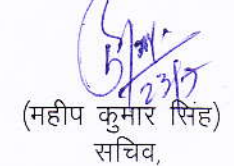 23/5
(महीप कुमार सिंह)
सचिव,